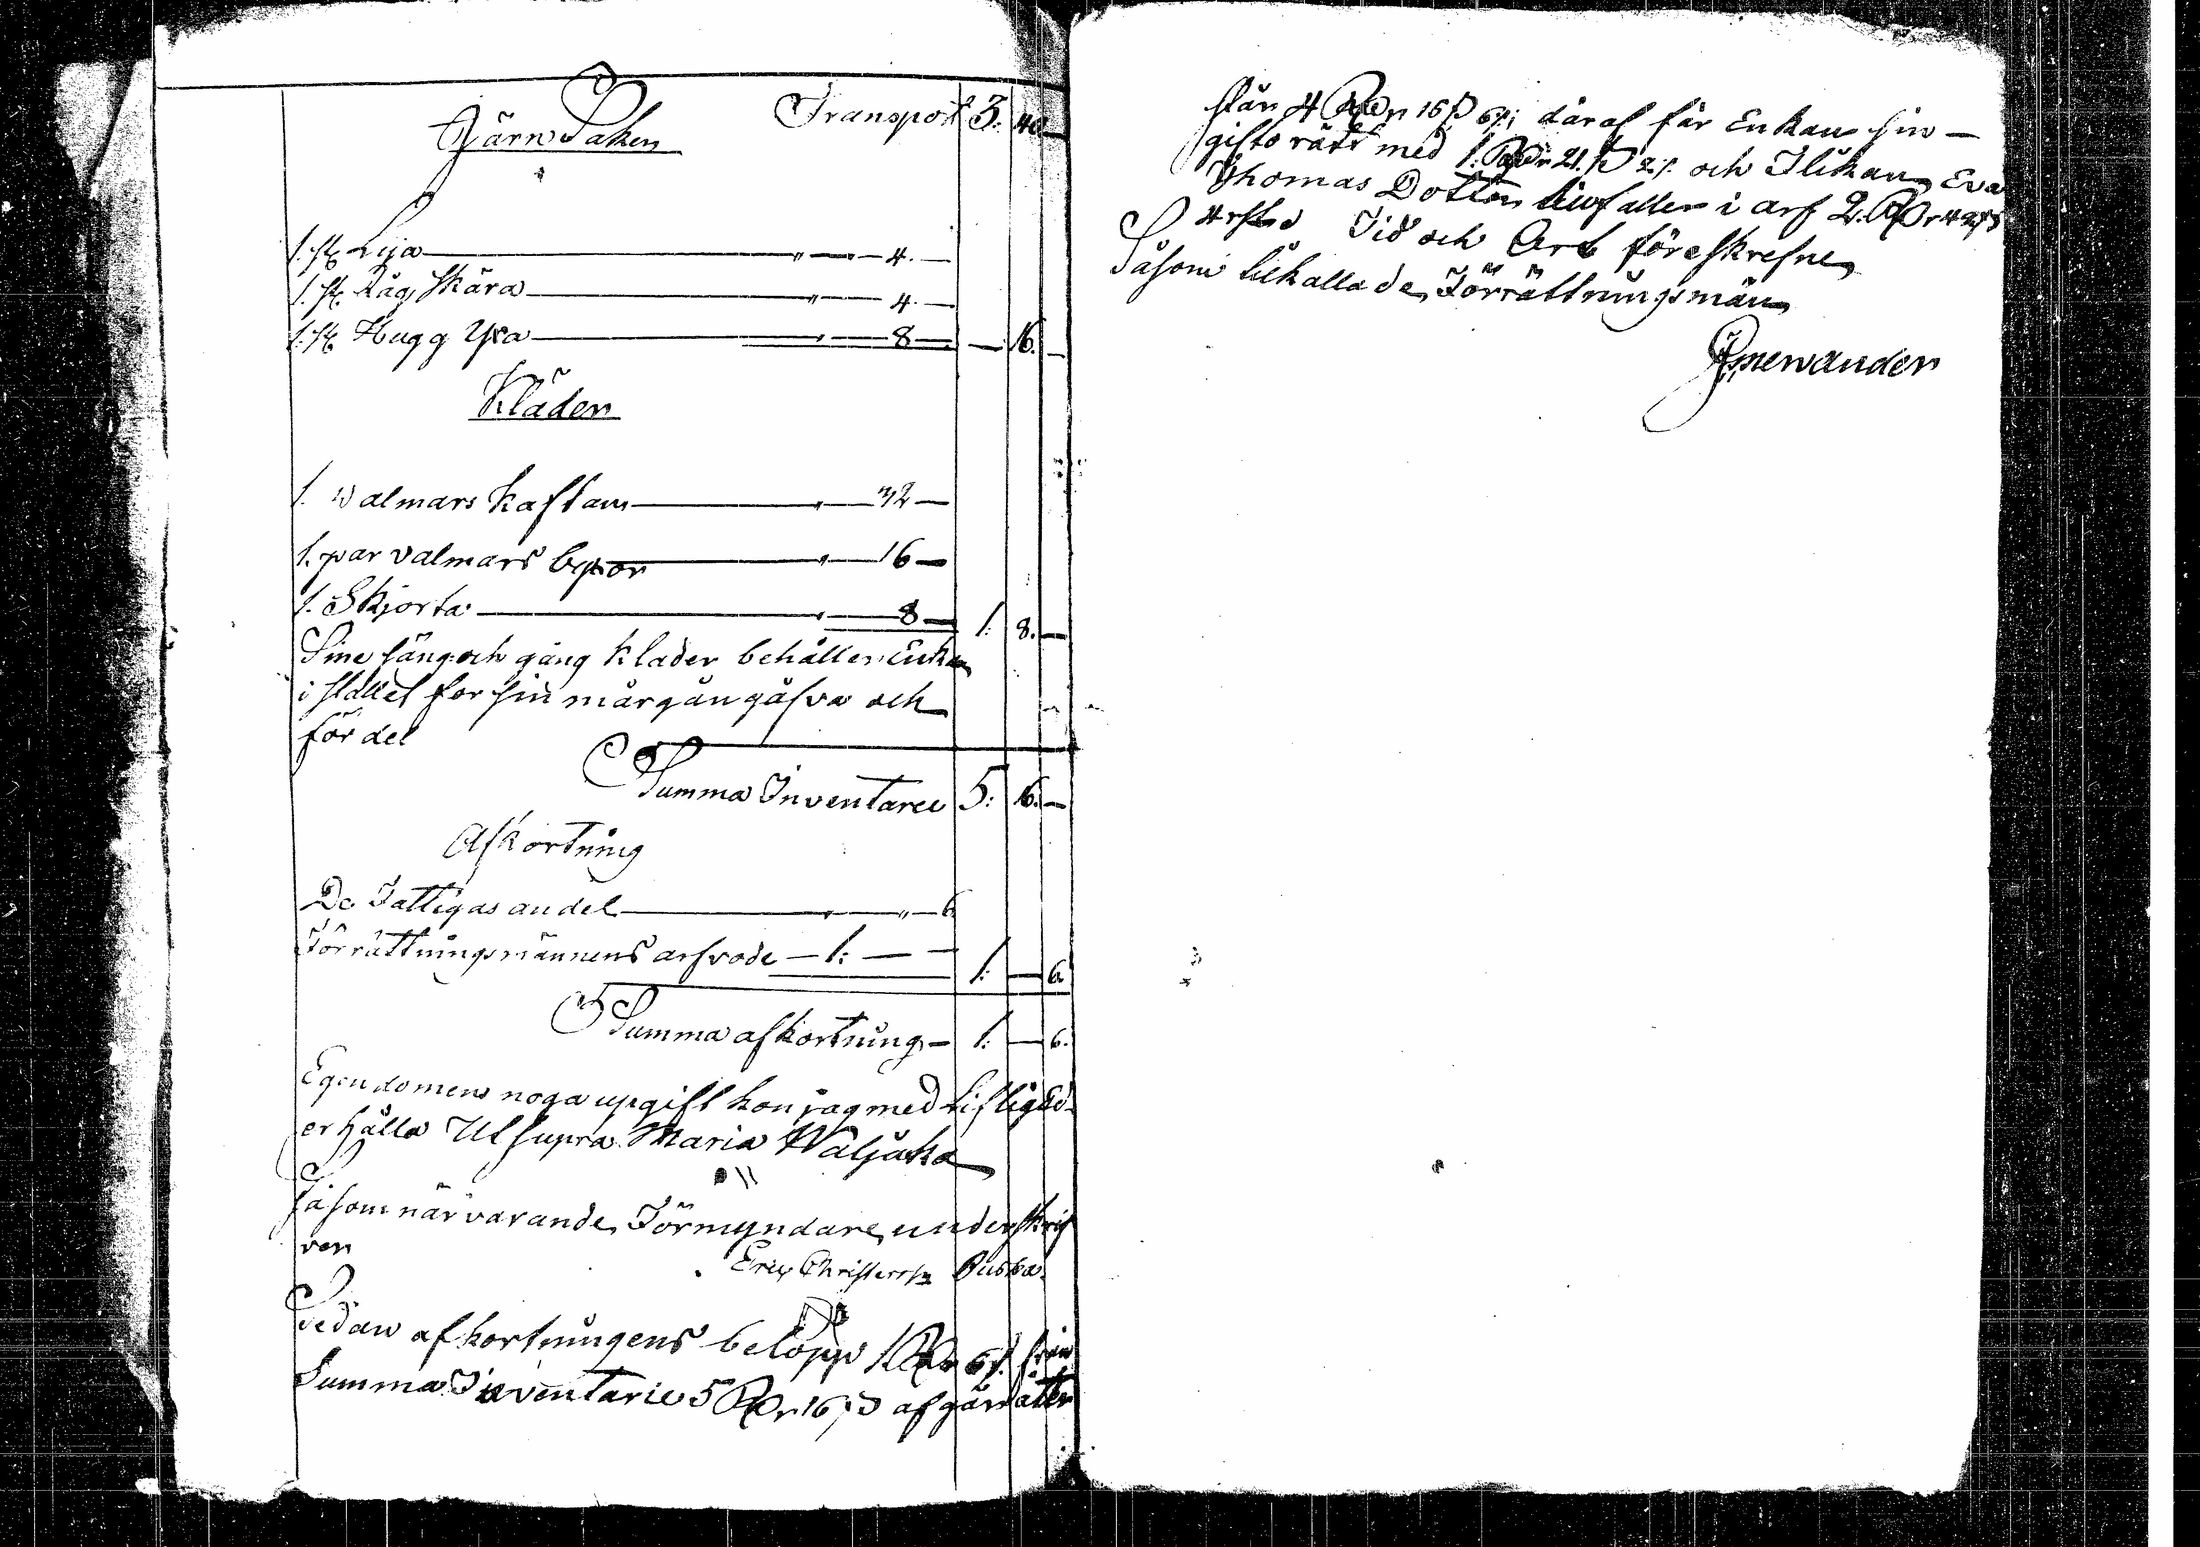 Transport 3: 40 —
Järn Saker
1. st. Lija — " — 4. —
1. st. Råg Skära — " — 4. —
1. st. Hugg Yxa — " — 8 — — 16. —
Kläder
1. Valmars kaftan — " — 32 —
1. par valmars byxor — " — 16 —
1. Skjorta — " — 8 — 1: 8. —
Sine säng och gång kläder behåller Enkan
i stället for sin mårgångåfva och
fördel
Summa Inventarie 5: 16. —
Afkortning
De Fattigas andel — " — " — 6
Förrättningsmännens arfvode — 1: — — 1: — 6.
Summa afkortning — 1: — 6.
Egendomens noga upgift kan jag med Liflig Ed
erhålla Ut supra Maria Waljaka
Såsom närvarande Förmyndare underskrif
ver
Eric Christersson
Sedan afkortningens belopp 1 Rdr 6 r. från
Summa Inventarie 5 Rdr 16 s afgår åter
står 4 Rdr 16 s 6 r; däraf får Enkan sin —
giftorätt med 1: Rdr 21. s 2 r. och Flickan Eva
Thomas Dotter tilfaller i arf 2. Rdr 42 s
4 rst. Tid och Ort föreskrefne
Såsom tilkallade Förrättningsmän